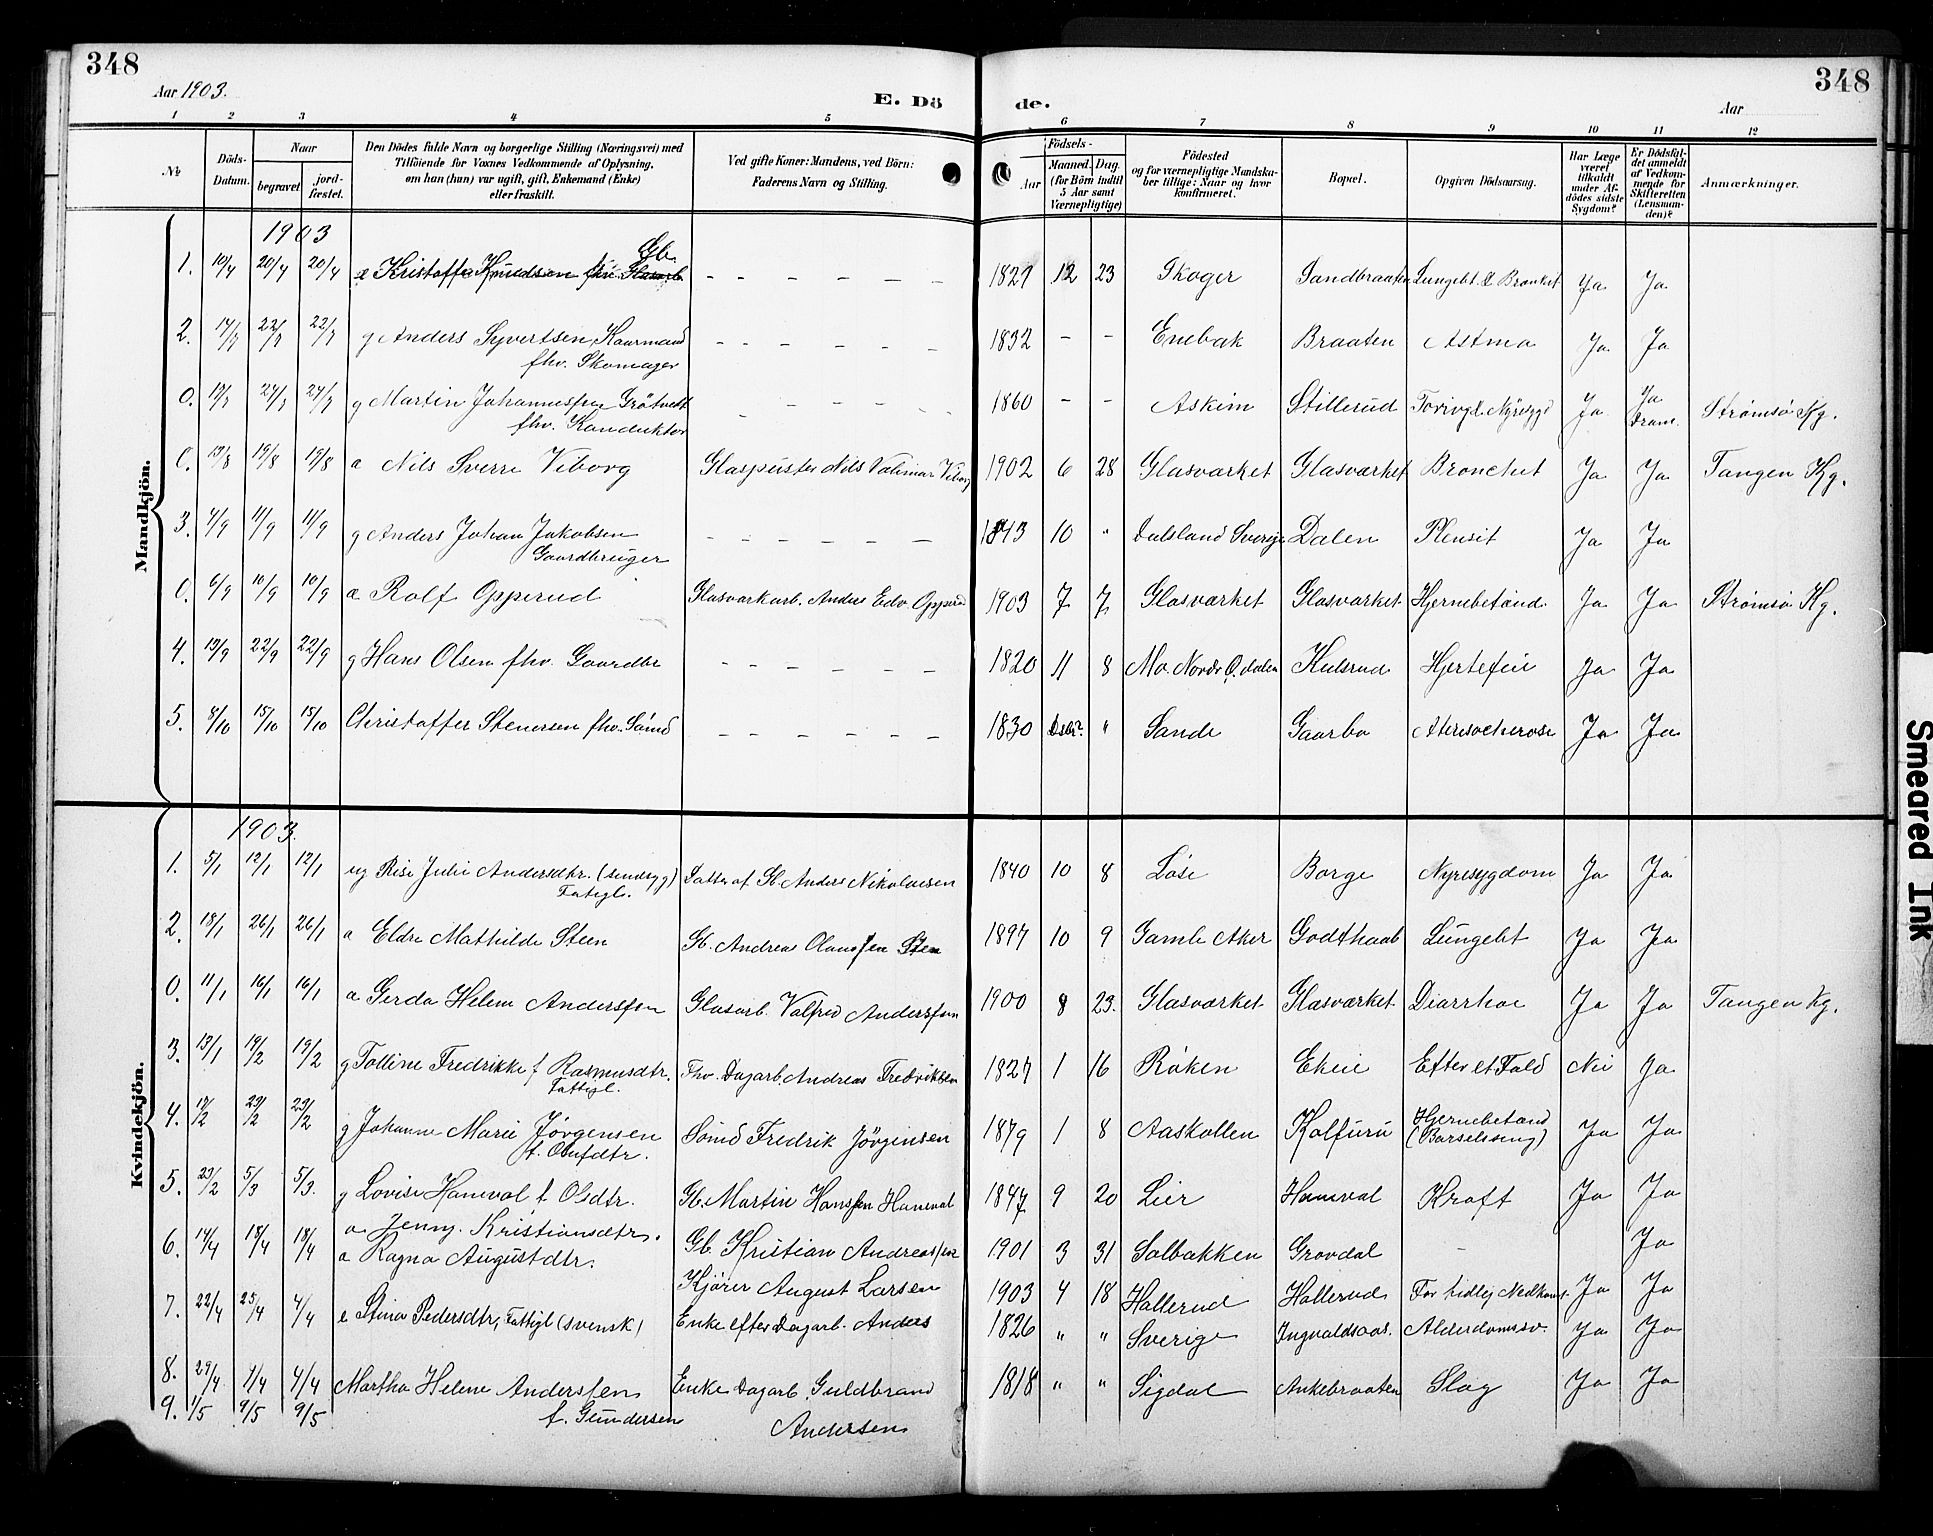 348
348
Aar 1903.
E. Dö
de.
Aar
1 2 3 4 5 6 7 8 9 10 11 12
№
Döds-Datum.
Naar
begravet
jord-fæstet.
Den Dödes fulde Navn og borgerlige Stilling (Næringsvei) med
Tilföiende for Voxnes Vedkommende af Oplysning,
om han (hun) var ugift, gift, Enkemand (Enke)
eller fraskilt.
Ved gifte Koner: Mandens, ved Börn:
Faderens Navn og Stilling.
Födsels-
Aar
Maaned. Dag.
(for Börn indtil
5 Aar samt
Værnepligtige)
Födested
og for værnepligtige Mandska-
ber tillige: Naar og hvor
konfirmeret.
Bopæl.
Opgiven Dödsaarsag.
Har Læge
været
tilkaldt
under Af-
dödes sidste
Sygdom?
Er Dödsfal-
det anmeldt
af Vedkom-
mende for
Skifteretten
(Lensman-
den)?
Anmærkninger.
Mandkjön.
1903
1. 10/4 20/4 20/4 Kristoffer Knudsen fhv. Gb. - - - - - 1827 12 23 Skoger Sandbraaten Lungebt. & Bronket Ja Ja
2. 22/7 22/7 g Anders Syvertsen Kaarmand - - - - - 1832 - - Enebak Braaten Astma Ja Ja
fhv. Skomager
0. 24/7 24/7 g Martin Johannessen Grötvedt - - - - - 1860 - - Askim Stillerud Nyresygd Ja Ja Dram. Strømsö Kg.
fhv. Konduktör
0. 13/8 19/8 19/8 a Nils Sverre Viborg Glaspuster Nils Valimar Viborg 1902 6 28 Glasværket Glasværket Bronchit Ja Ja Tangen Kg.
3. 4/9 11/9 11/9 g Anders Johan Jakobsen - - - - - 1843 10 " Dalsland Sverige Dalen Plevrit Ja Ja
Gaardbruger
0. 6/9 10/9 10/9 a Rolf Opperud Glasværkarb. Anders Edv. Opperud 1903 7 7 Glasværket Glasværket Hjernebetænd. Ja Ja Strømsö Kg.
4. 13/9 22/9 22/9 g Hans Olsen fhv. Gaardbr - - - - - 1820 11 8 Mo. Nordr O. dalen Kulsrud Hjertefeil Ja Ja
5. 8/10 15/10 15/10 Christoffer Stenersen fhv. Sömd - - - - - 1830 " Sande Gaarbo Ja Ja
Kvindekjön.
1903.
1. 5/1 12/1 12/1 ug Risi Julie Andersdtr. (sindsyg) Datter af Gb. Anders Nikolaisen 1840 10 8 Löse Borge Nyresygdom Ja Ja
Fatigl.
2. 18/1 26/1 26/1 a Eldre Mathilde Steen Gb. Andreas Olaussen Steen 1897 10 9 Gamle Aker Godthaab Lungebt Ja Ja
0. 11/1 16/1 16/1 a Gerda Helene Anderssen Glasarb. Valfred Anderssen 1900 8 23. Glasværket Glasværket Diarrhoe Ja Ja Tangen Kg.
3. 13/1 19/2 19/2 g Tolline Fredrikke f Rasmusdtr. Fhv. Dagarb. Andreas Fredriksen 1827 1 16 Röken Ekeie Efter et Fald Nei Ja
Fattigl.
4. 23/2 23/2 g Johanne Marie Jörgensen Sömd Fredrik Jörgensen 1879 1 8 Aaskollen Kolfuru Hjernebetænd (Barselseng) Ja Ja
f. Olufdtr.
5. 23/2 5/3 5/3. g Lovise Haneval f. Olsdtr. Gb. Martin Hanssen Haneval 1847 9 20 Lier Haneval Kræft Ja Ja
6. 14/4 18/4 18/4 a Jenny Kristiansdtr. Gb. Kristian Andreassen 1901 3 31 Solbakken Grovdal - Ja
a Ragna Augustdtr. Kjörer August Larsen 1903 4 18 Hallerud Hallerud For tidlig Nedkomst Ja Ja
7. 22/4 25/4 4/4 e Stina Pedersdtr, Fattigl (svensk) Enke efter Dagarb. Anders 1826 " " Sverige Ingvaldsaas. Alderdomssv. Ja Ja
8. 29/4 4/4 4/4 Martha Helene Anderssen Enke Dagarb Guldbrand 1818 " " Sigdal Ankebraaten Slag Ja Ja
9. 1/5 9/5 9/5 f. Gundersen Andersen
Smeared Ink